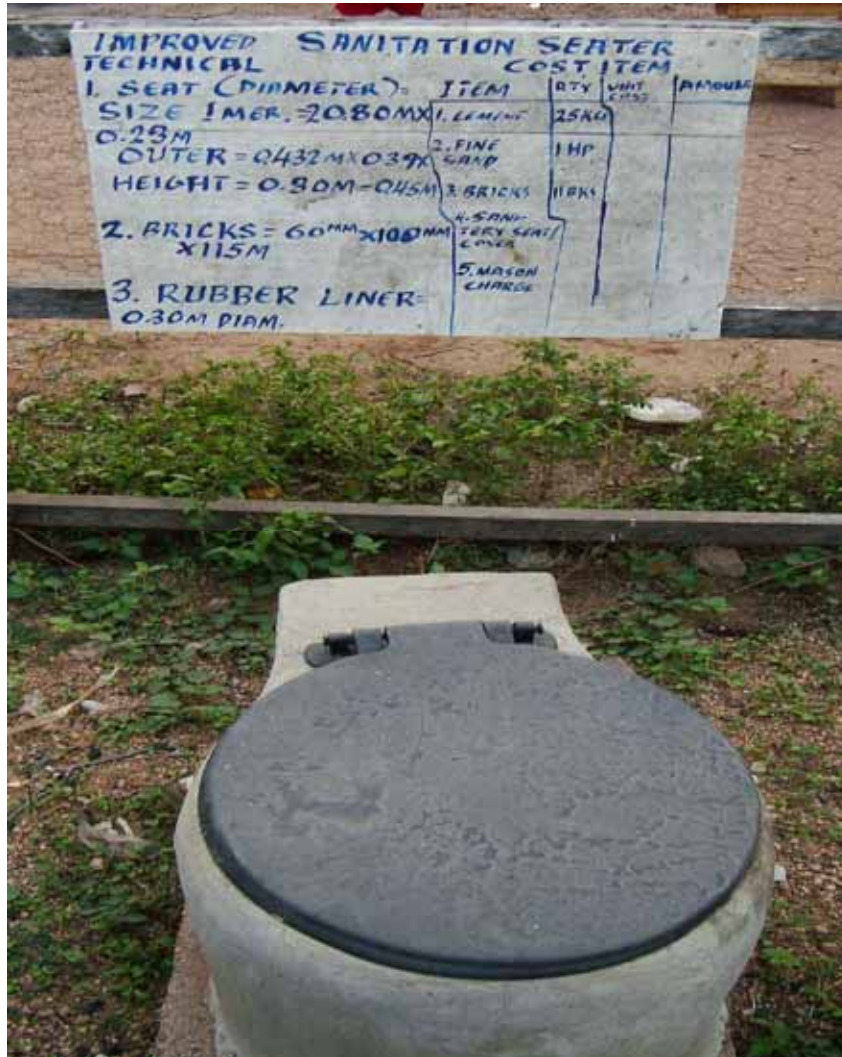 IMPROVED SANITATION SEATER
TECHNICAL COST ITEM
1. SEAT (DIAMETER)=
SIZE IMER. =20.80MX
0.23M
OUTER = 0.432MX0.39X
HEIGHT = 0.30M-0.45M
2. BRICKS = 60MM X100MM
X115M
3. RUBBER LINER=
0.30M DIAM.
ITEM QTY UNIT COST AMOUNT
1. CEMENT 25KG
2. FINE SAND 1HP
3. BRICKS 11BKS
4. SANI-
TERY SEAT/
COVER
5. MASON
CHARGE